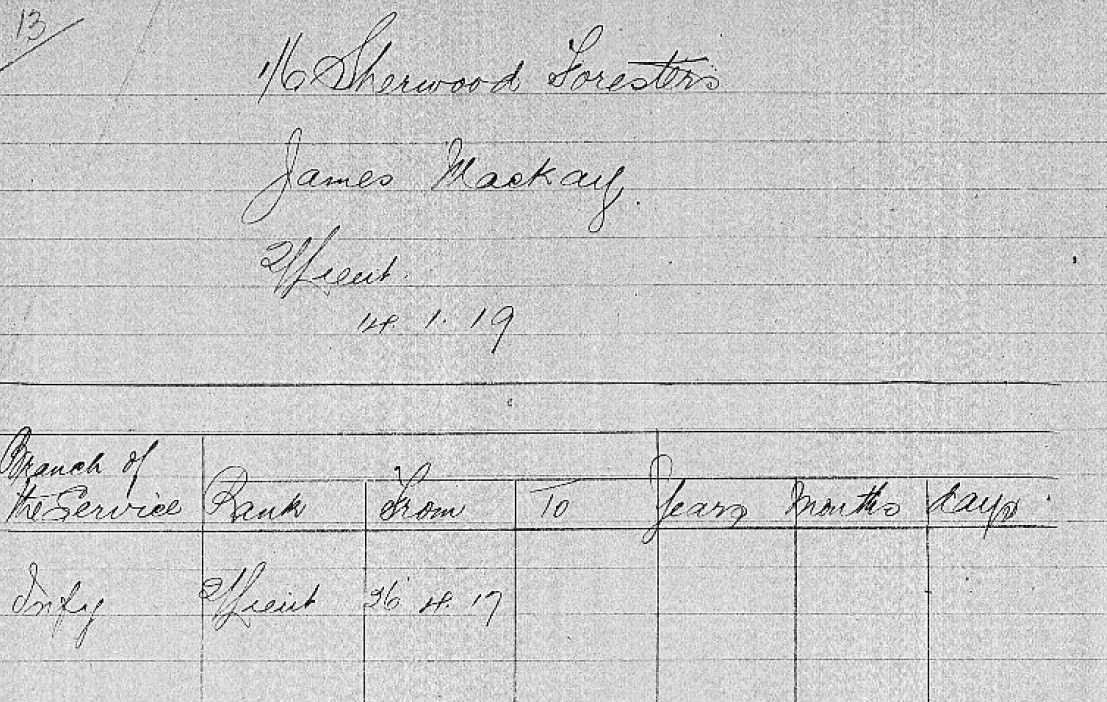 13/
1/6 Sherwood Foresters
James Mackay.
2/Lieut.
14. 1. 19
Branch of
the Service Rank From To Years Months Days
Infy 2/Lieut 26 4. 17